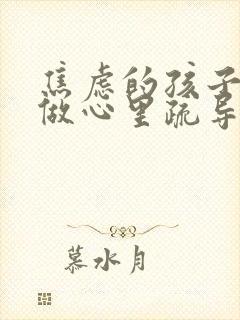 焦虑的孩子
做心里疏导
慕水月